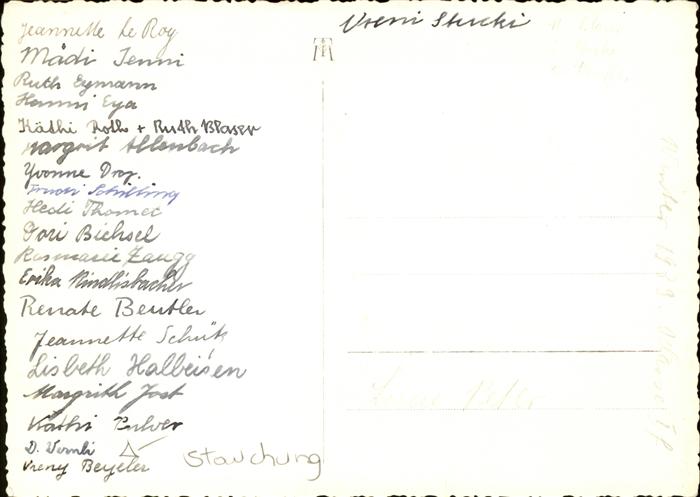 Jeannette Le Roy
Mädi Jenni
Ruth Eymann
Hanni Eya
Käthi Roth + Ruth Blaser
Margrit Allenbach
Yvonne Droz.
Schilling
Hedi Thomet
Dori Bichsel
Rosmarie Zaugg
Erika Rindlisbacher
Renate Beutler
Jeannette Schütz
Lisbeth Halbeisen
Margrith Jost
Käthi Pulver
D. Wernli
Vreny Beyeler
Stauchung
Vreni Stucki
Peter
Winter